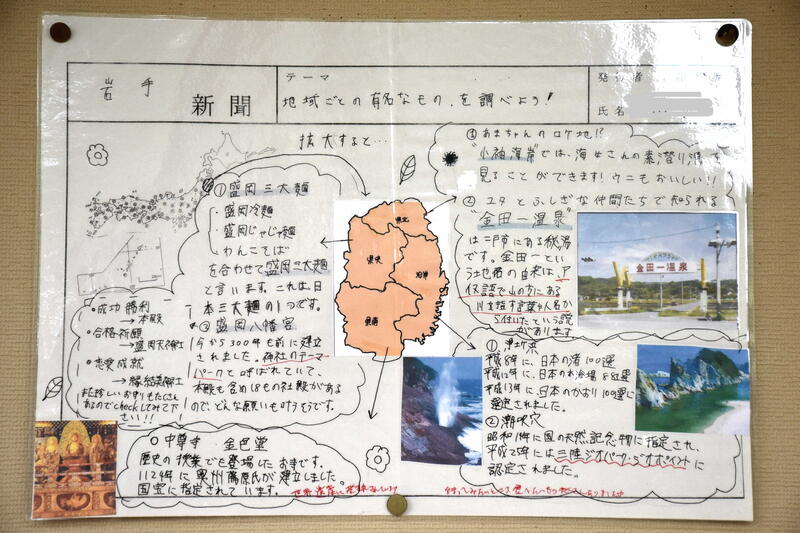 岩手
新聞
テーマ
地域ごとの有名なもの、を調べよう!
発行者
氏名
拡大すると…
① 盛岡三大麺
・盛岡冷麺
・盛岡じゃじゃ麺
・わんこそば
を合わせて盛岡三大麺
と言います。これは、日
本三大麺の1つです。
② 盛岡八幡宮
今から300年も前に建立
されました。神社のテーマ
パークと呼ばれていて、
本殿も含め18もの社殿がある
ので、どんな願いも叶うそうです。
・成功勝利
→本殿
・合格祈願
→盛岡天満宮
・恋愛成就
→縁結美神社
また珍しいお守りもたくさん
あるのでcheckしてみて下
さい!!
県北
県央
沿岸
県南
① あまちゃんのロケ地!!
"小袖海岸"では、海女さんの素潜り漁を
見ることができます!ウニもおいしい!!
② ユタとふしぎな仲間たちで知られる
"金田一温泉"
は二戸市にある秘湯
です。金田一とい
う土地名の由来は、ア
イヌ語で山の方にある
川を指す言葉や人名か
ら付いたという説
があります
金田一温泉
①. 浄土ヶ浜
平成8年に、日本の渚100選
平成12年に、日本の水浴場88選
平成13年に、日本のかおり100選に
選定されました。
② 潮吹穴
昭和14年に国の天然記念物に指定され、
平成25年には三陸ジオパーク・ジオポイントに
認定されました。
○ 中尊寺 金色堂
歴史の授業でも登場したお寺です。
1124年に奥州藤原氏が建立しました。
国宝に指定されています。